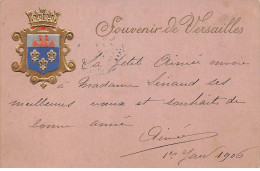 Souvenir de Versailles
La Petite Aimée envoie
à Madame Sinaud ses
meilleurs vœux et souhaits de
bonne année
Aimée
1er Janv 1906